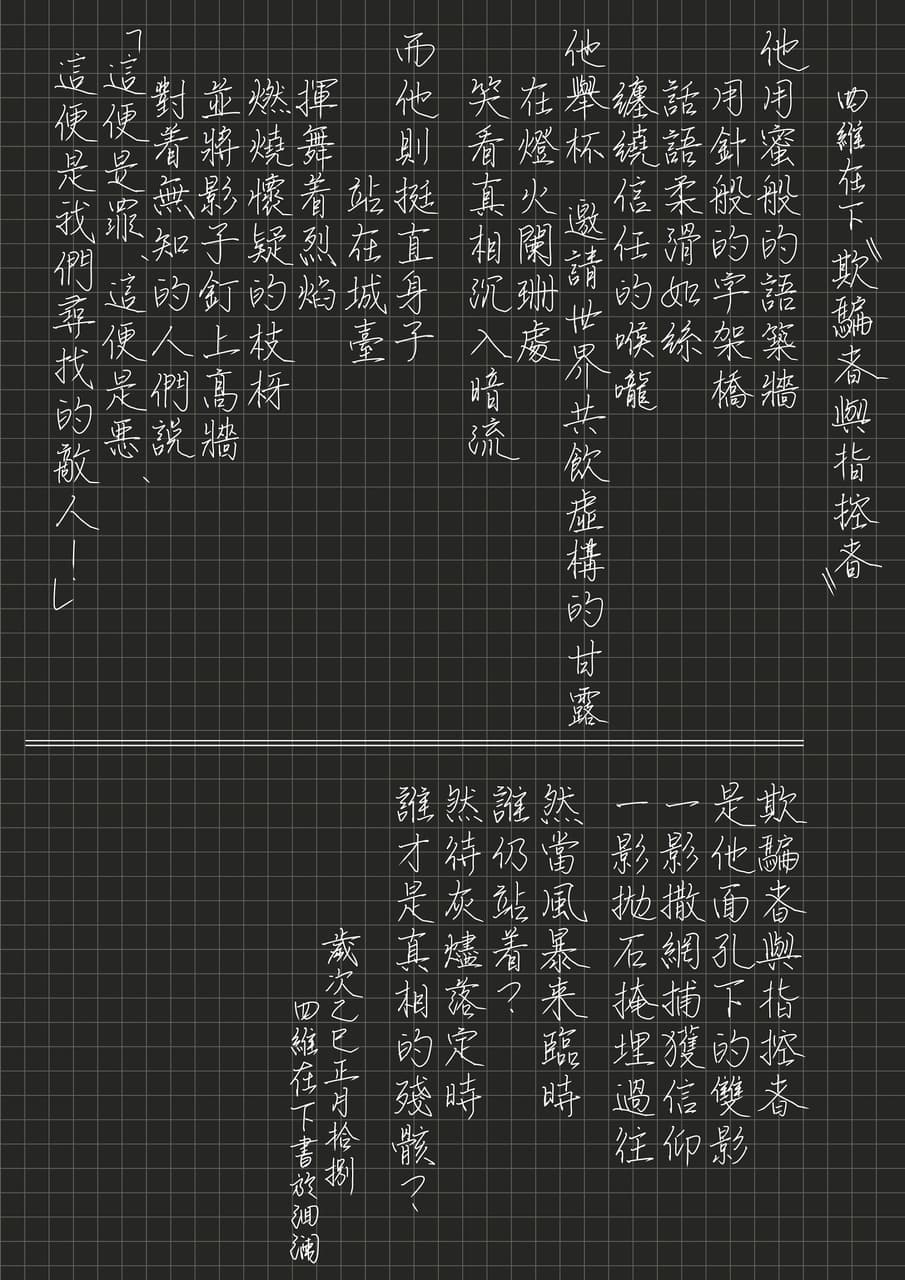 四維在下《欺騙者與指控者》
他用蜜般的語築牆
用針般的字架橋
話語柔滑如絲
纏繞信任的喉嚨
他舉杯 邀請世界共飲虛構的甘露
在燈火闌珊處
笑看真相沉入暗流
而他則挺直身子
站在城臺
揮舞着烈焰
燃燒懷疑的枝枒
並將影子釘上高牆
對着無知的人們說
「這便是罪、這便是惡、
這便是我們尋找的敵人！」
欺騙者與指控者
是他面孔下的雙影
一影撒網捕獲信仰
一影拋石掩埋過往
然當風暴来臨時
誰仍站着？
然待灰燼落定時
誰才是真相的殘骸？
歲次乙巳正月拾捌
四維在下書於洄瀾